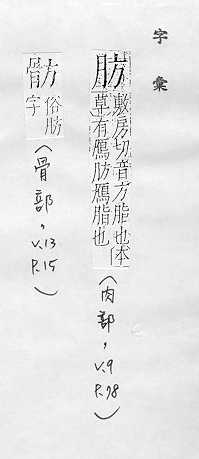 字彙
肪敷房切音方脂也本
草有鴈肪鴈脂也
(肉部，V.9 P.78)
䯋俗肪
字
(骨部，V.13 P.15)